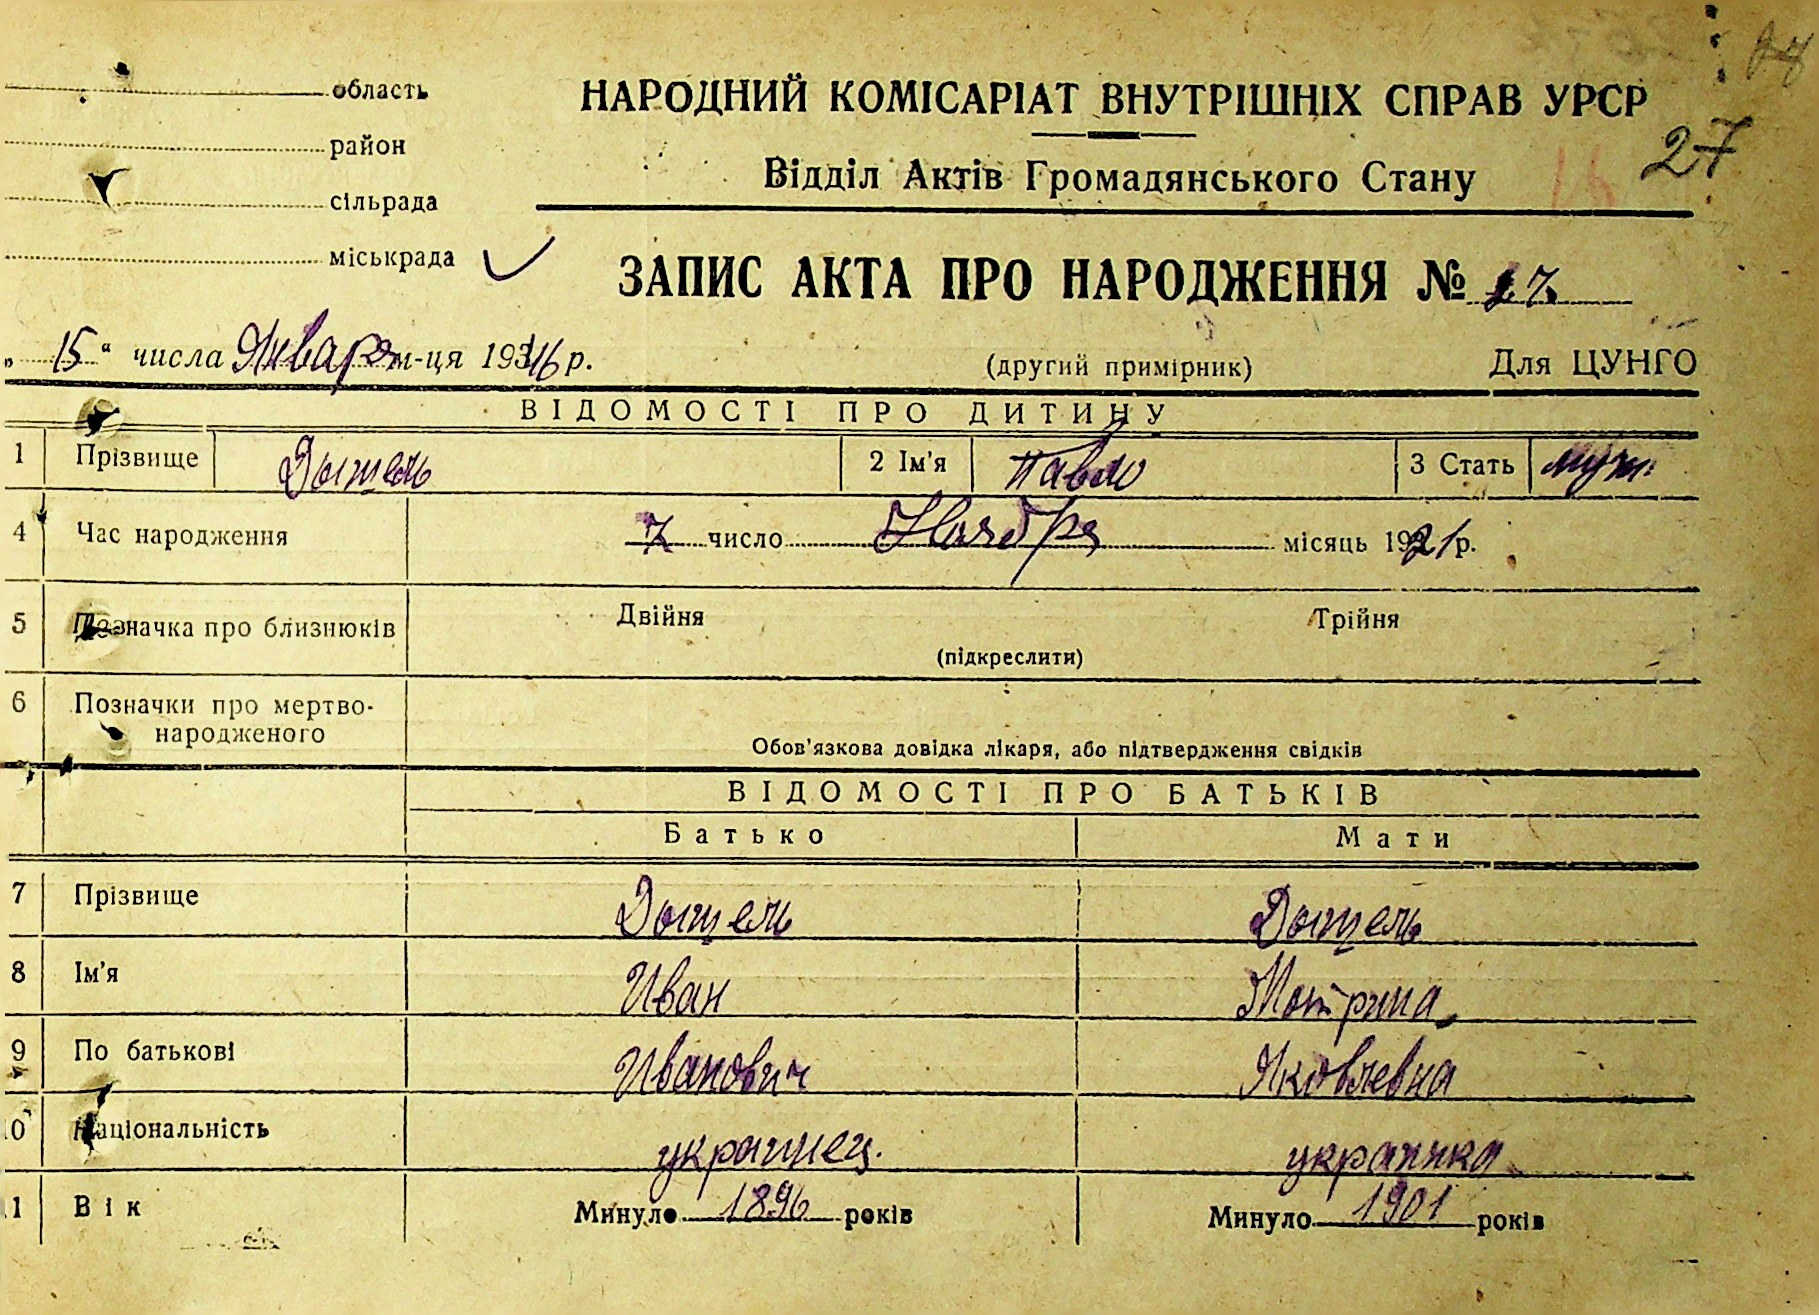 область
район
сільрада
міськрада
НАРОДНИЙ КОМІСАРІАТ ВНУТРІШНІХ СПРАВ УРСР
27
Відділ Актів Громадянського Стану
ЗАПИС АКТА ПРО НАРОДЖЕННЯ № 27
„ 15 “ числа Января м-ця 1946 р.
(другий примірник)
Для ЦУНГО
ВІДОМОСТІ ПРО ДИТИНУ
1 Прізвище Дышель 2 Ім'я Павло 3 Стать муж.
4 Час народження 7 число Ноября місяць 1921 р.
5 Позначка про близнюків Двійня Трійня
(підкреслити)
6 Позначки про мертво-
народженого
Обов'язкова довідка лікаря, або підтвердження свідків
ВІДОМОСТІ ПРО БАТЬКІВ
Батько Мати
7 Прізвище Дышель Дышель
8 Ім'я Иван Мотрина
9 По батькові Иванович Яковлевна
10 Національність украинец. украинка
11 Вік Минуло 1896 років Минуло 1901 років